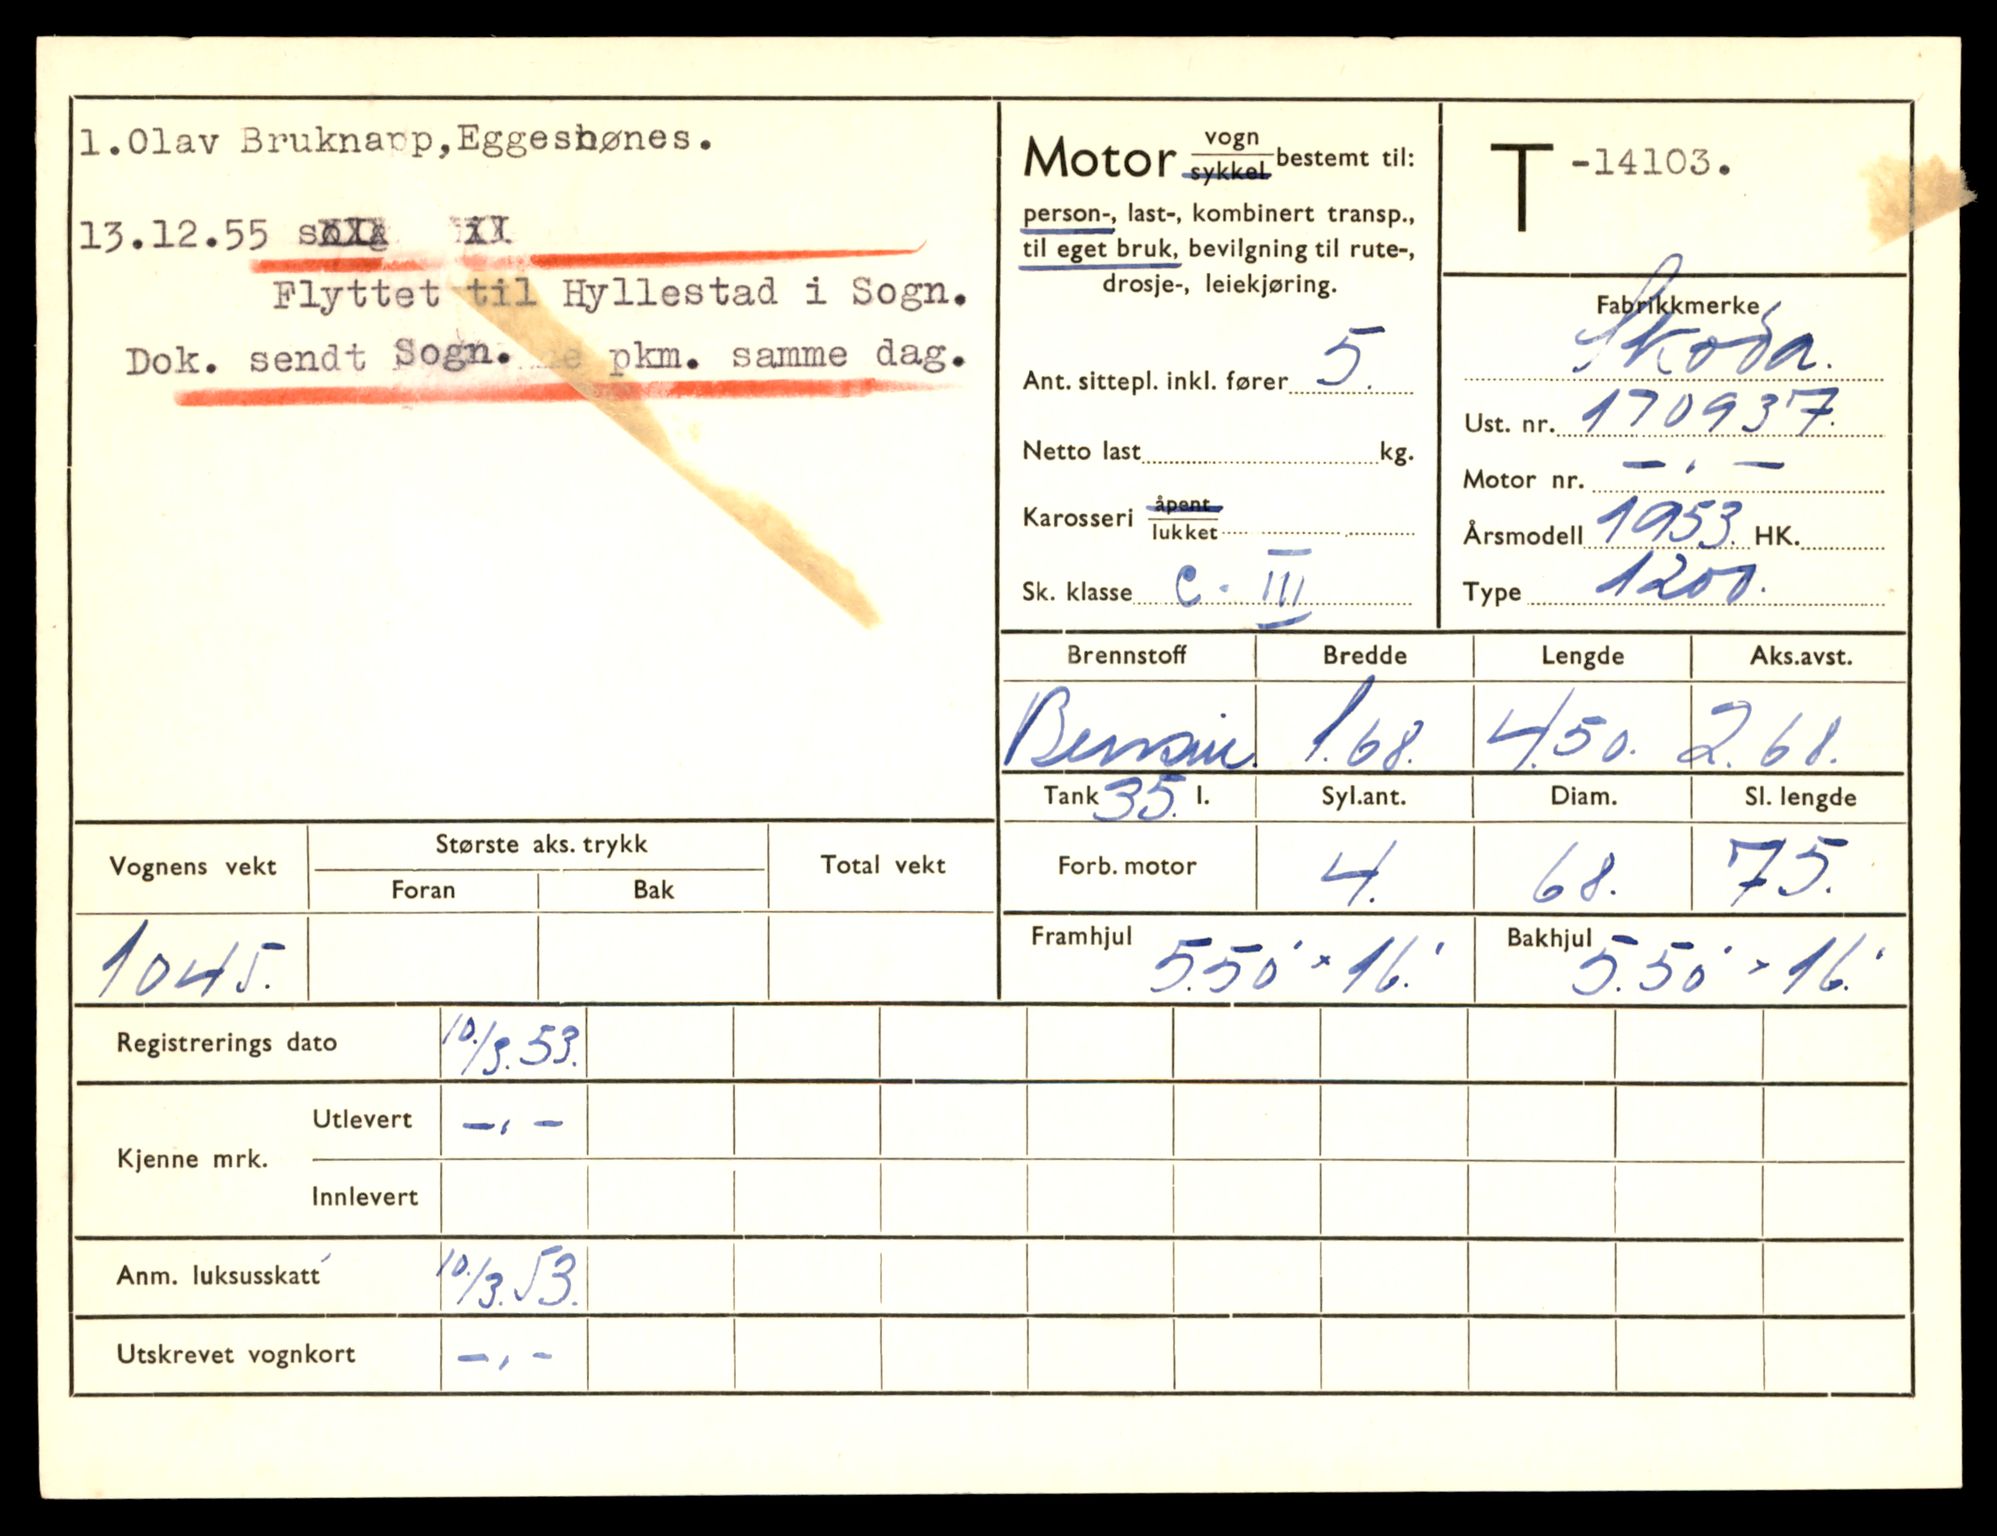 1.Olav Bruknapp,Eggesbønes.
13.12.55
Flyttet til Hyllestad i Sogn.
Dok. sendt Sogn. pkm. samme dag.
Motor vogn
sykkel bestemt til:
person-, last-, kombinert transp.,
til eget bruk, bevilgning til rute-,
drosje-, leiekjøring.
Ant. sittepl. inkl. fører 5.
Netto last kg.
Karosseri åpent
lukket
Sk. klasse C. III
T -14103.
Fabrikkmerke
Skoda.
Ust. nr. 170937.
Motor nr. — . —
Årsmodell 1953. HK.
Type 1200.
Brennstoff Bredde Lengde Aks.avst.
Bensin. 1.68. 4.50. 2.68.
Tank 35. l. Syl.ant. Diam. Sl. lengde
Forb. motor 4. 68. 75.
Framhjul 5.50 × 16. Bakhjul 5.50 × 16.
Vognens vekt Største aks. trykk Total vekt
Foran Bak
1045.
Registrerings dato 10./3.53.
Kjenne mrk. Utlevert —.—
Innlevert
Anm. luksusskatt 10./3.53.
Utskrevet vognkort —.—